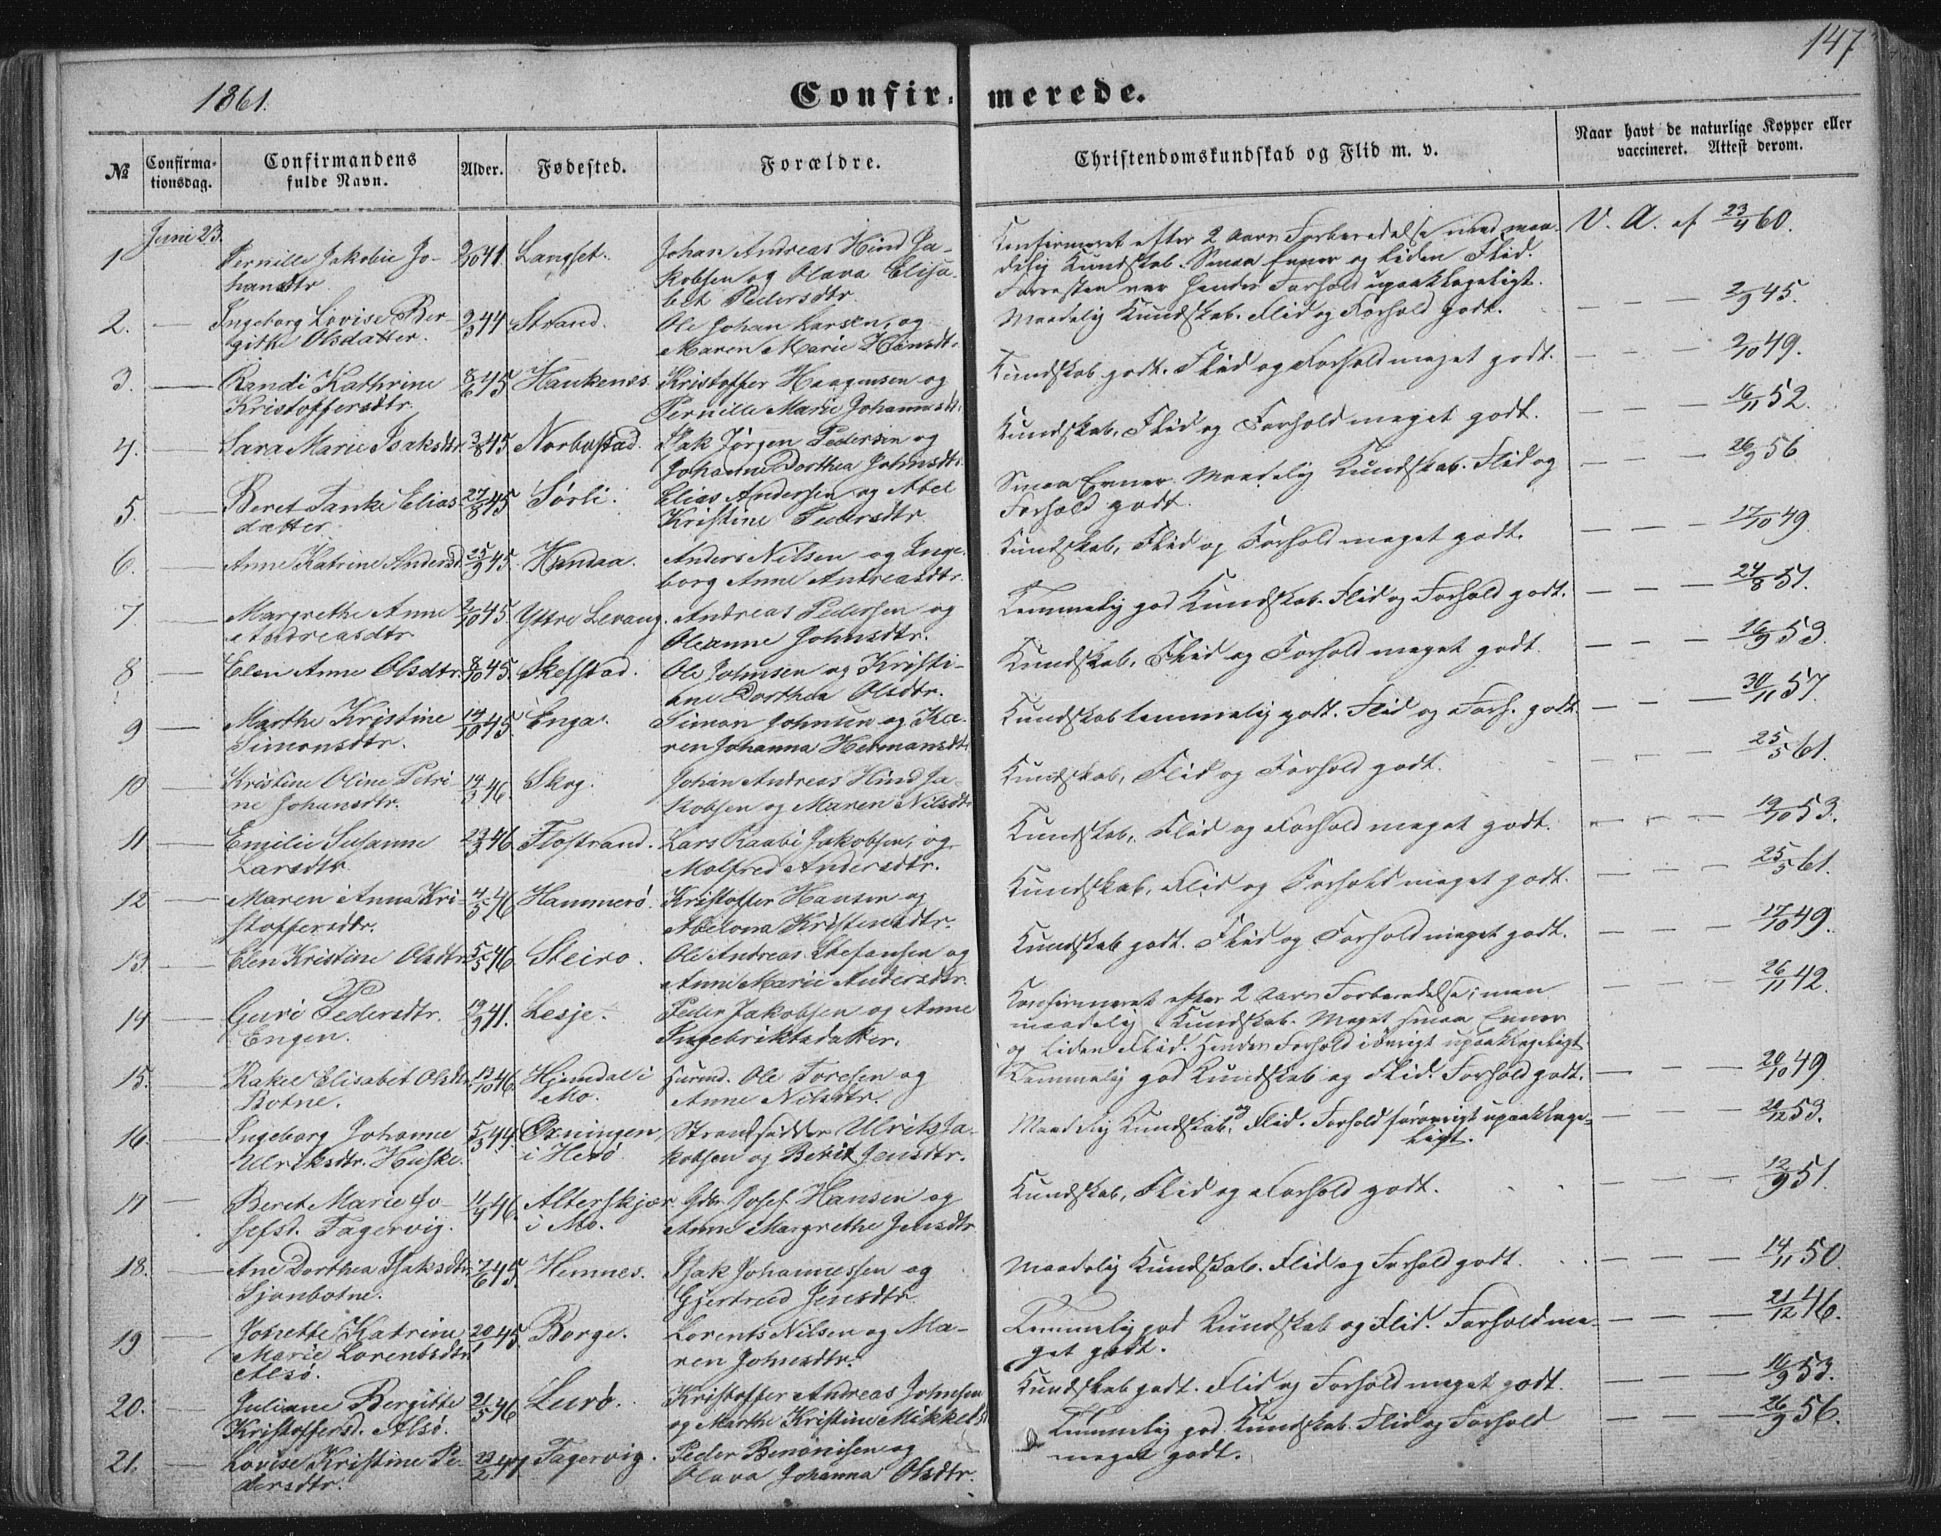 147
1861.
Confirmerede.
№
Confirmationsdag.
Confirmandens fulde Navn.
Alder.
Fødested.
Forældre.
Christendomskundskab og Flid m. v.
Naar havt de naturlige Kopper eller vaccineret. Attest derom.
Juni 23.
1 Pernille Jakobie Jo- Langset. Johan Andreas Hind Ja- Konfirmeret efter 2 Aars Forberedelse med maa- V. A. af 23/4 60.
hansdtr kobsen og Olava Elisa- delig Kundskab. Smaa Evner og liden Flid.
bet Pedersdtr. Forresten var hendes Forhold upaaklageligt.
2. — Ingeborg Lovise Ber- 2/3 44 Strand. Ole Johan Larsen, og Maadelig Kundskab. Flid og Forhold godt. — — — 2/9 45.
gitte Olsdatter. Maren Marie Hansdtr.
3. — Randi Kathrine 8/6 45 Haukenes. Kristoffer Haagensen og Kundskab godt. Flid og Forhold meget godt. — — — 2/10 49.
Kristoffersdtr. Pernille Marie Johannesdtr.
4. — Sara Marie Isaksdtr. 3/8 45 Isak Jørgen Pedersen og Kundskab, Flid og Forhold meget godt. — — — 16/11 52.
Johanne Dorthea Johnsdtr.
5. — Beret Tanke Elias- 27/8 45 Sørli. Elias Andersen og Abel Smaa Evner. Maadelig Kundskab. Flid og — — — 26/9 56
datter. Kristine Pedersdtr. Forhold godt.
6. — Anne Katrine Andersd. 25/9 45. Hansaa. Anders Nilsen og Inge- Kundskab, Flid og Forhold meget godt. — — — 17/10 49.
borg Anne Andreasdtr.
7 — Margrethe Anne 2/10 45. Yttre Levang. Andreas Pedersen og Temmelig god Kundskab. Flid og Forhold godt. — — — 24/8 51.
Andreasdtr Oleanne Johnsdtr.
8 — Elen Anne Olsdtr. 8/10 45. Ole Johnsen og Kristi- Kundskab, Flid og Forhold meget godt. — — — 16/9 53.
ane Dorthea Olsdtr.
9 — Marthe Kristine 14/10 45. Enga. Simon Johnsen og Ka- Kundskab temmelig godt. Flid og Forh. godt. — — — 30/11 57.
Simonsdtr. ren Johanna Hermansdtr.
10 — Kristine Oline Petri- 14/3 46. Skog. Johan Andreas Hind Ja- Kundskab, Flid og Forhold godt. — — — 25/5 61.
ne Johansdtr. kobsen og Maren Nilsdtr.
11 — Emilie Susanne 46. Flostrand. Lars Raabi Jakobsen, og Kundskab, Flid og Forhold meget godt. — — — 19/10 53.
Larsdtr. Molfred Andersdtr.
12 — Maren Anna Kri- 4/5 46 Hammerø. Kristoffer Hansen og Kundskab, Flid og Forhold meget godt. — — — 25/5 61.
stoffersdtr. Abelona Kristensdtr.
13 — Elen Kristine Olsdtr. 5/5 46. Steiro. Ole Andreas Stefansen og Kundskab godt. Flid og Forhold meget godt. — — — 17/10 49.
Anne Marie Andersdtr.
14 — Guri Pedersdtr. 19/9 41. Lesje. Peder Jakobsen og Anne Konfirmeret efter 2 Aars Forberedelse; men — — — 26/11 42.
Engen. Ingebriktsdatter. maadelig Kundskab. Meget smaa Evner
og liden Flid. Hendes Forhold iøvrigt upaaklageligt.
15. — Rakel Elisabet Olsdtr. 46. Hjemdal i Husmd. Ole Toresen og Temmelig god Kundskab og Flid. Forhold godt. — — — 20/10 49.
Botne. Mo. Anne Nilsdtr.
16. — Ingeborg Johanne 5/3 44. Øxningen Strandsidder Ulrik Ja- Maadelig Kundskab og Flid. Forhold forøvrigt upaaklage- — — — 53.
Ulriksdtr. Huske. i Herø. kobsen og Berit Jensdtr. ligt.
17 — Beret Marie Jo- 46. Alterskjær Gdbr. Josef Hansen og Kundskab, Flid og Forhold godt. — — — 12/9 51.
sefsd. Fagervig. i Mo. Anne Margrethe Jensdtr.
18. — Ane Dorthea Isaksdtr. 7/6 45. Hemnes. Isak Johannessen og Maadelig Kundskab. Flid og Forhold godt. — — — 14/11 50.
Sjonbotne. Gjertrud Jensdtr.
19 Johette Katrine 45. Borge. Lorents Nilsen og Ma- Temmelig god Kundskab og Flid. Forhold me- — — — 21/12 46.
Marie Lorentsdtr. ren Johnsdtr. get godt.
Alsø.
20. — Juliane Bergitte 21/5 46 Lurø. Kristoffer Andreas Johnsen Kundskab godt. Flid og Forhold meget godt. — — — 16/9 53.
Kristoffersd. Alsø. og Marthe Kristine Mikkelsd.
21. — Lovise Kristine Pe- Fagervig. Peder Benonisen og Temmelig god Kundskab. Flid og Forhold — — — 26/9 56.
dersdtr. Olava Johanna Olsdtr. meget godt.